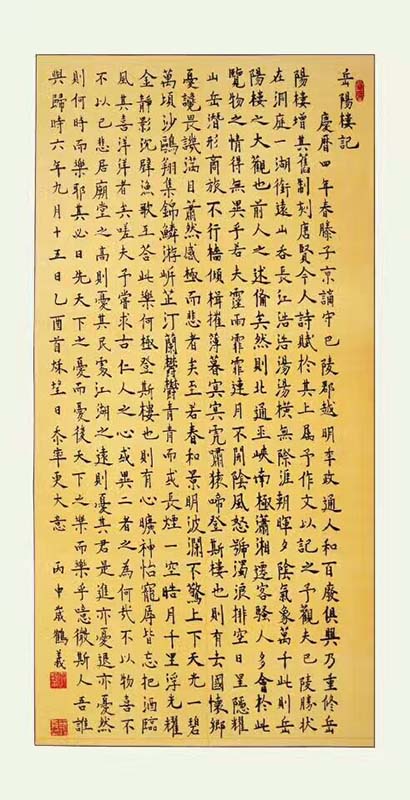 岳陽樓記
慶曆四年春滕子京謫守巴陵郡越明年政通人和百廢俱興乃重修岳
陽樓增其舊制刻唐賢今人詩賦於其上屬予作文以記之予觀夫巴陵勝狀
在洞庭一湖銜遠山吞長江浩浩湯湯橫無際涯朝暉夕陰氣象萬千此則岳
陽樓之大觀也前人之述備矣然則北通巫峽南極瀟湘遷客騷人多會於此
覽物之情得無異乎若夫霪雨霏霏連月不開陰風怒號濁浪排空日星隱耀
山岳潛形商旅不行檣傾楫摧薄暮冥冥虎嘯猿啼登斯樓也則有去國懷鄉
憂讒畏譏滿目蕭然感極而悲者矣至若春和景明波瀾不驚上下天光一碧
萬頃沙鷗翔集錦鱗游岸芷汀蘭鬱鬱青青而或長煙一空皓月千里浮光耀
金靜影沉璧漁歌互答此樂何極登斯樓也則有心曠神怡寵辱皆忘把酒臨
風其喜洋洋者矣嗟夫予嘗求古仁人之心或異二者之為何哉不以物喜不
不以己悲居廟堂之高則憂其民處江湖之遠則憂其君是進亦憂退亦憂然
則何時而樂耶其必曰先天下之憂而憂後天下之樂而樂乎噫微斯人吾誰
與歸時六年九月十五日乙酉首秌望日 大意 丙申歲鶴義